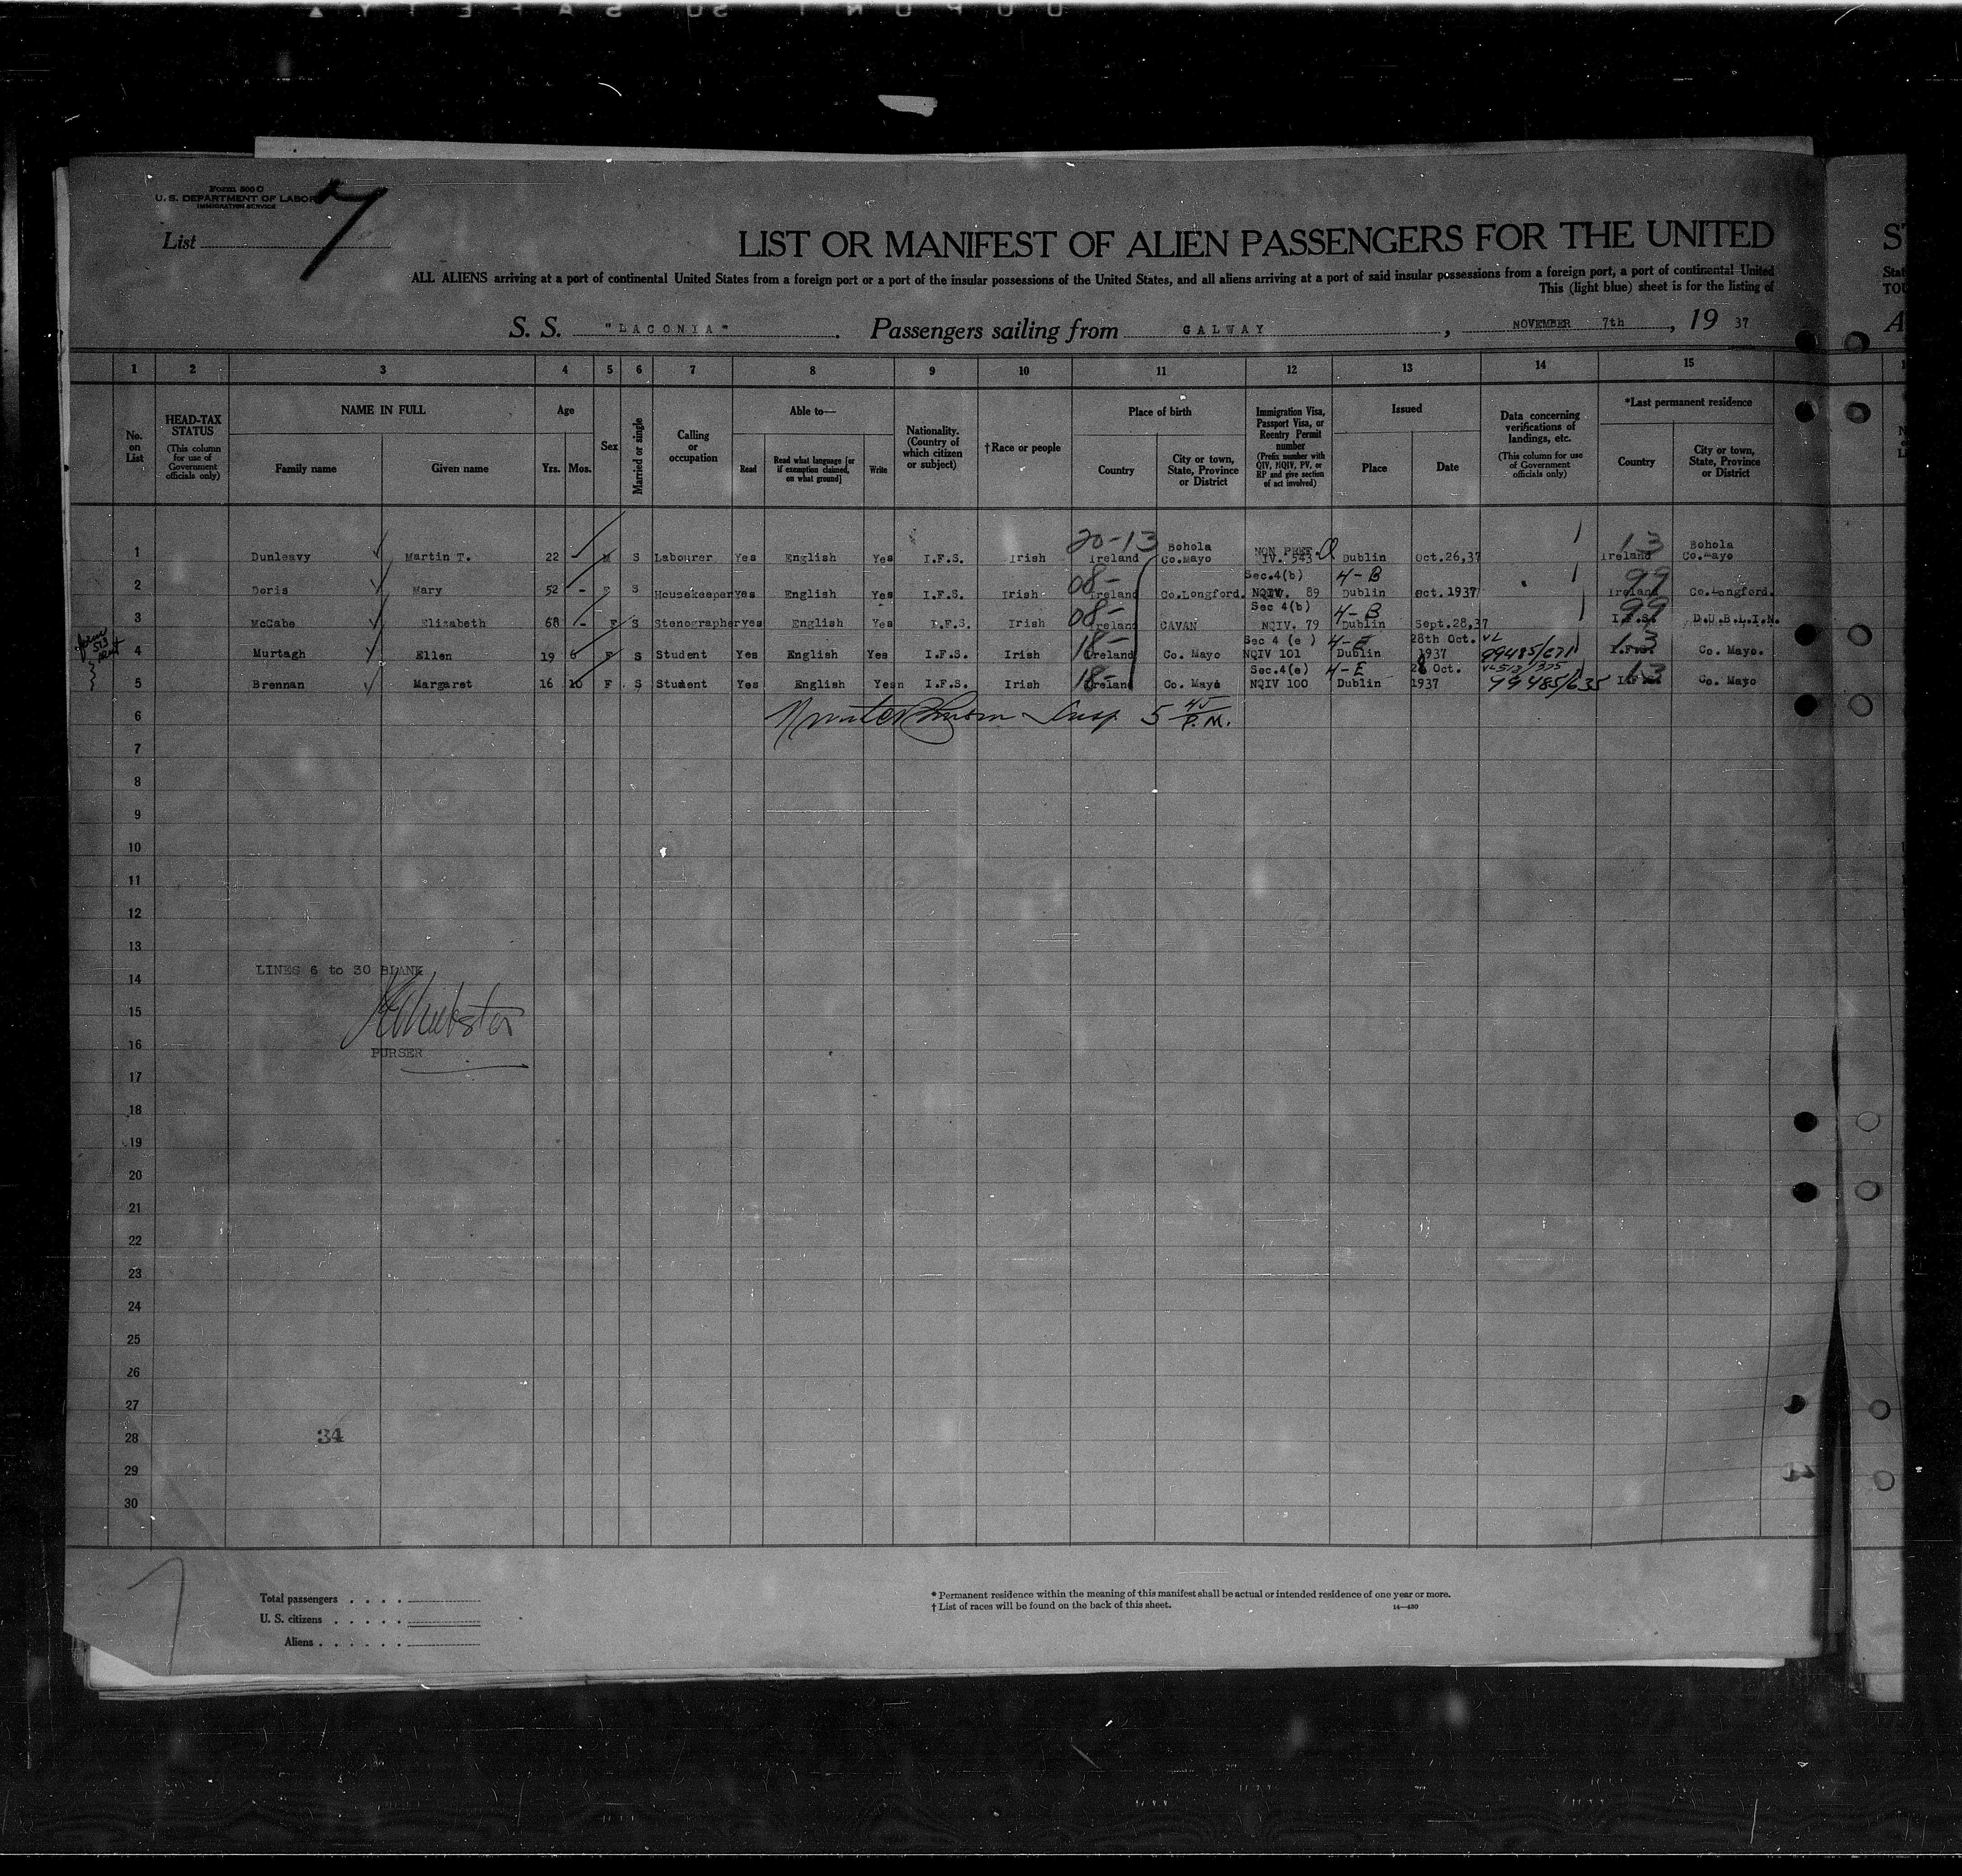 Form 500 C
U. S. DEPARTMENT OF LABOR
IMMIGRATION SERVICE
List 7
LIST OR MANIFEST OF ALIEN PASSENGERS FOR THE UNITED
ALL ALIENS arriving at a port of continental United States from a foreign port or a port of the insular possessions of the United States, and all aliens arriving at a port of said insular possessions from a foreign port, a port of continental United
This (light blue) sheet is for the listing of
S. S. "LACONIA". Passengers sailing from GALWAY, NOVEMBER 7th, 19 37
1 2 3 4 5 6 7 8 9 10 11 12 13 14 15
No. on List
HEAD-TAX STATUS (This column for use of Government officials only)
NAME IN FULL
Family name Given name
Age
Yrs. Mos.
Sex
Married or single
Calling or occupation
Able to—
Read Read what language [or if exemption claimed, on what ground] Write
Nationality. (Country of which citizen or subject)
†Race or people
Place of birth
Country City or town, State, Province or District
Immigration Visa, Passport Visa, or Reentry Permit number (Prefix number with QIV, NQIV, PV, or RP and give section of act involved)
Issued
Place Date
Data concerning verifications of landings, etc. (This column for use of Government officials only)
*Last permanent residence
Country City or town, State, Province or District
1 Dunleavy Martin T. 22 - M S Labourer Yes English Yes I.F.S. Irish 20-13 Ireland Bohola Co.Mayo NON PREF. IV. 543 Dublin Oct.26,37 13 Ireland Bohola Co.Mayo
2 Doris Mary 52 - F S Housekeeper Yes English Yes I.F.S. Irish 08- Ireland Co.Longford. Sec.4(b) NQIV. 89 4-B Dublin Oct. 1937 99 Ireland Co.Longford.
3 McCabe Elizabeth 68 - F S Stenographer yes English Yes I.F.S. Irish 08- Ireland CAVAN Sec 4(b) NQIV. 79 4-B Dublin Sept.28,37 99 I.F.S. D.U.B.L.I.N.
4 Murtagh Ellen 19 6 F S Student Yes English Yes I.F.S. Irish 18- Ireland Co. Mayo Sec 4 (e) NQIV 101 4-E Dublin 28th Oct. 1937 VL 99485/671 13 I.F.S. Co. Mayo.
5 Brennan Margaret 16 10 F S Student Yes English Yesn I.F.S. Irish 18- Ireland Co. Mayo Sec.4(e) NQIV 100 4-E Dublin 28 Oct. 1937 99485/635 13 I.F.S. Co. Mayo
6 Insp. 5 45 P.M.
7
8
9
10
11
12
13
LINES 6 to 30 BLANK
14
15
16
PURSER
17
18
19
20
21
22
23
24
25
26
27
28
34
29
30
Total passengers
U. S. citizens
Aliens
* Permanent residence within the meaning of this manifest shall be actual or intended residence of one year or more.
† List of races will be found on the back of this sheet. 14—430